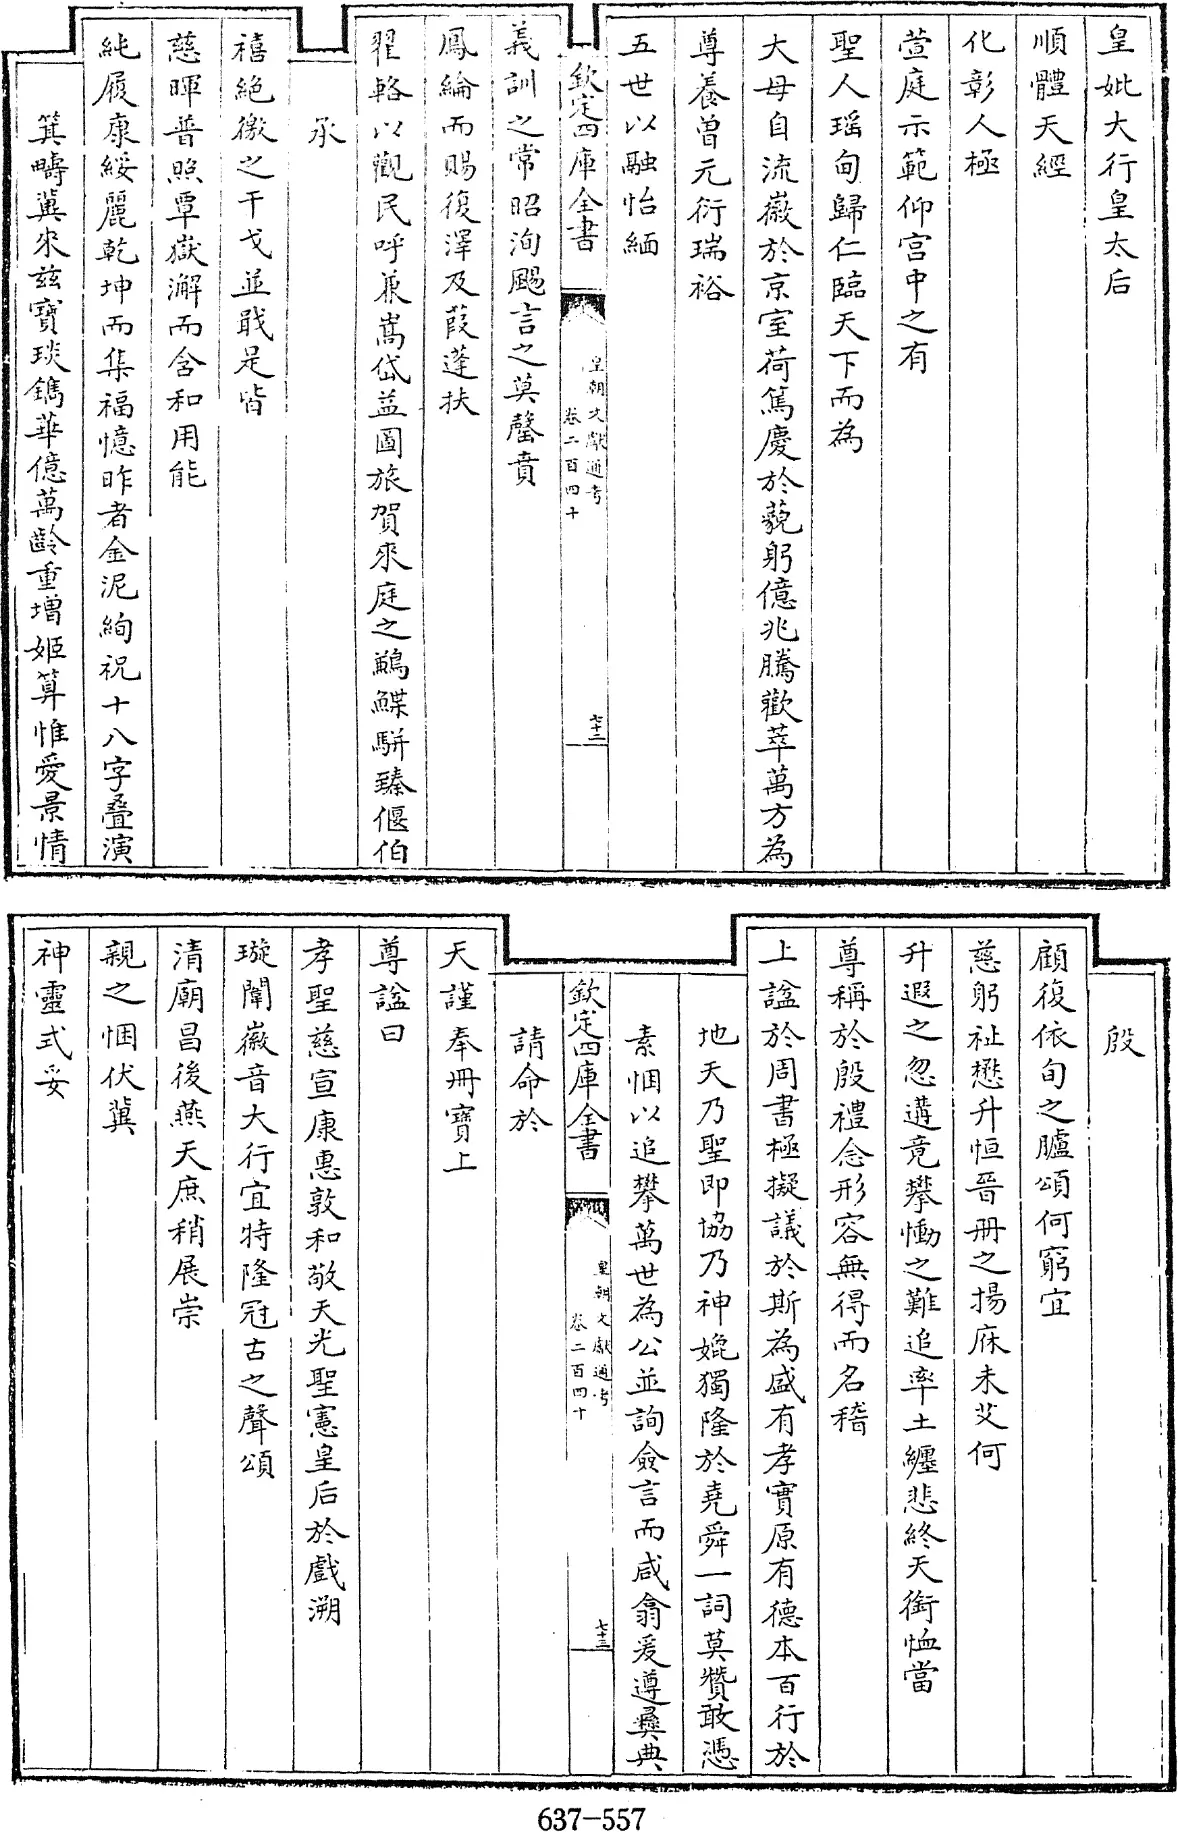 皇妣大行皇太后
順體天經
化彰人極
萱庭示範仰宫中之有
聖人瑶甸歸仁臨天下而為
大母自流徽於京室荷篤慶於藐躬億兆騰歡萃萬方為
尊養曽元衍瑞裕
五世以融怡緬
欽定四庫全書
皇朝文獻通考
卷二百四十
七十二
義訓之常昭洵颺言之莫罄賁
鳳綸而賜復澤及葭蓬扶
翟輅以觀民呼兼嵩岱益圖旅賀來庭之鶼鰈駢臻偃伯
承
禧絶徼之干戈並戢是皆
慈暉普照覃嶽澥而含和用能
純履康綏麗乾坤而集福憶昨者金泥絢祝十八字疊演
箕疇冀來兹寶琰鐫華億萬齡重增姬算惟愛景情
殷
顧復依旬之臚頌何窮宜
慈躬祉懋升恒晉冊之揚庥未艾何
升遐之忽遘竟攀慟之難追率土纏悲終天銜恤當
尊稱於殷禮念形容無得而名稽
上諡於周書極擬議於斯為盛有孝實原有德本百行於
地天乃聖即協乃神媲獨隆於堯舜一詞莫贊敢憑
素悃以追攀萬世為公並詢僉言而咸翕爰遵彞典
欽定四庫全書
皇朝文獻通考
卷二百四十
七十三
請命於
天謹奉冊寶上
尊諡曰
孝聖慈宣康惠敦和敬天光聖憲皇后於戲溯
璇闈徽音大行宜特隆冠古之聲頌
清廟昌後燕天庶稍展崇
親之悃伏冀
神靈式妥
637-557